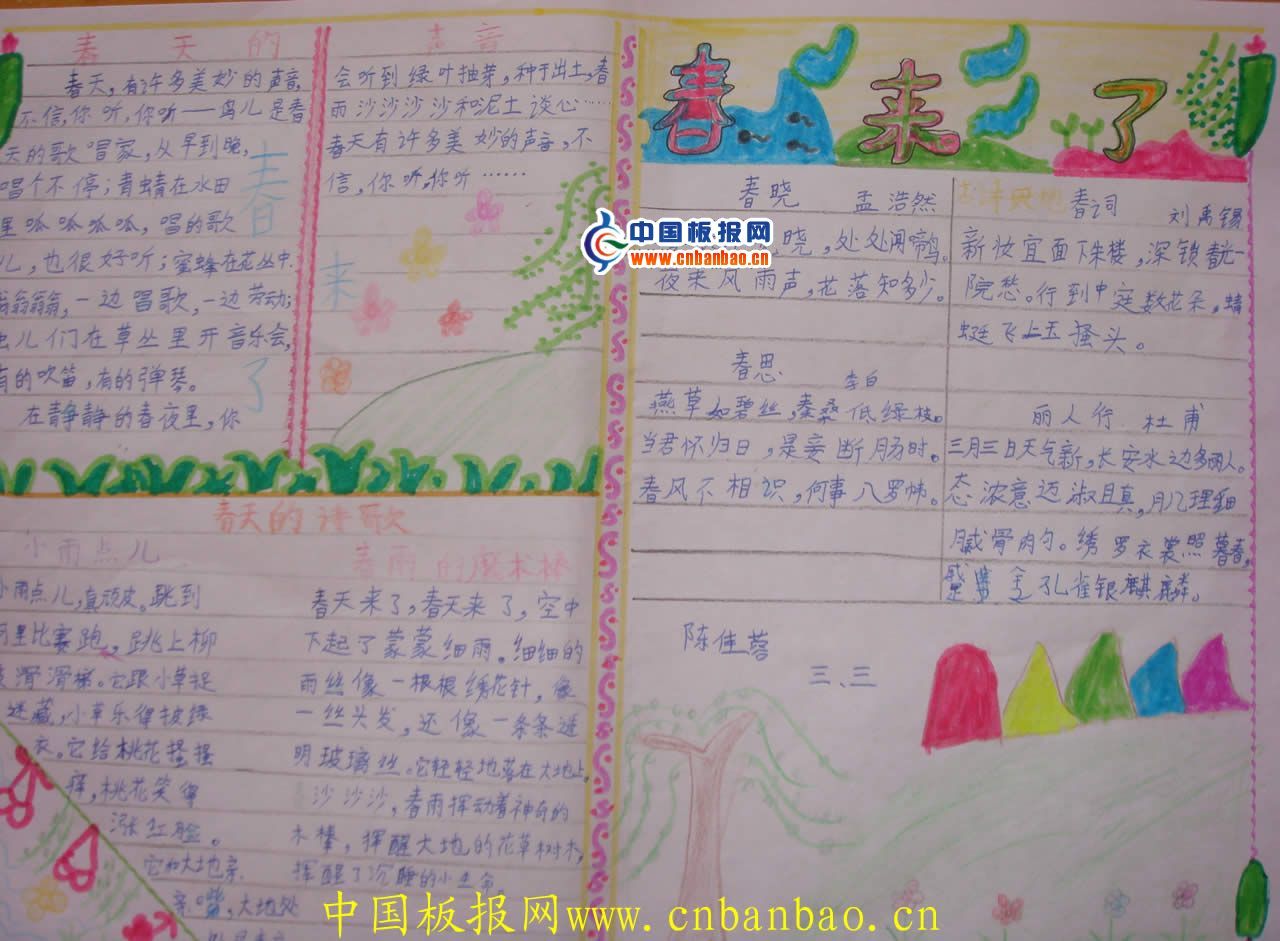 春天的声音
春天,有许多美妙的声音,
不信,你听,你听——鸟儿是春
天的歌唱家,从早到晚,
唱个不停;青蜻在水田
里呱呱呱呱,唱的歌
儿,也很好听;蜜蜂在花丛中
翁翁翁,一边唱歌,一边劳动;
虫儿们在草丛里开音乐会,
有的吹笛,有的弹琴。
在静静的春夜里,你
会听到绿叶抽芽,种子出土,春
雨沙沙沙沙和泥土谈心……
春天有许多美妙的声音,不
信,你听,你听……
春
来
了
春天的诗歌
小雨点儿
小雨点儿,真顽皮。跳到
河里比赛跑,跳上柳
滑滑梯。它跟小草捉
迷藏,小草乐得披绿
衣。它给桃花搔搔
痒,桃花笑得
涨红脸。
它和大地亲
亲嘴,大地处
春雨的魔术棒
春天来了,春天来了,空中
下起了蒙蒙细雨。细细的
雨丝像一根根绣花针,像
一丝头发,还像一条条透
明玻璃丝。它轻轻地落在大地上,
沙沙沙,春雨挥动着神奇的
木棒,挥醒大地的花草树木,
挥醒了沉睡的小生命。
春来了
春晓 孟浩然
晓,处处闻啼鸟。
夜来风雨声,花落知多少。
春思 李白
燕草如碧丝,秦桑低绿枝。
当君怀归日,是妾断肠时。
春风不相识,何事入罗帏。
春词 刘禹锡
新妆宜面下朱楼,深锁春光一
院愁。行到中庭数花朵,蜻
蜓飞上玉搔头。
丽人行 杜甫
三月三日天气新,长安水边多丽人。
态浓意迈淑且真,肌理细
腻骨肉匀。绣罗衣裳照暮春,
金孔雀银麒麟。
陈佳蓉
三、三
中国板报网
www.cnbanbao.cn
中国板报网www.cnbanbao.cn